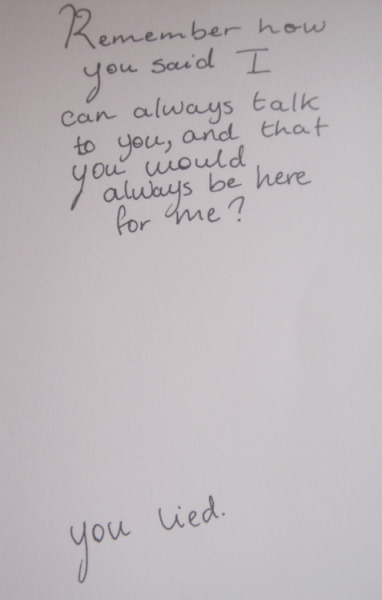 Remember how
you said I
can always talk
to you, and that
you would
always be here
for me?
you lied.